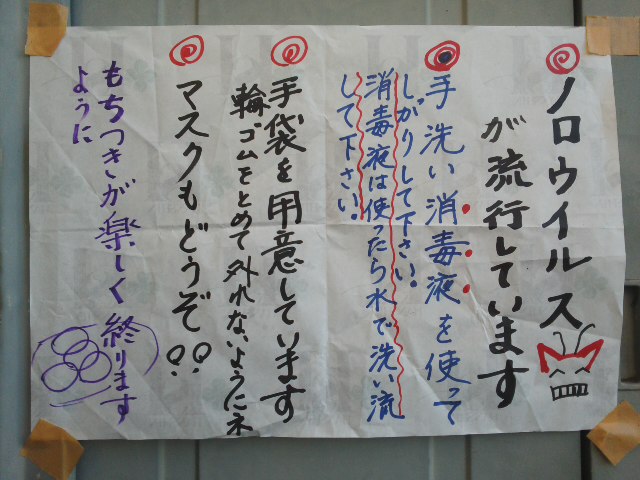 ノロウイルス
が流行しています
手洗い消毒液を使って
しっかりして下さい。
消毒液は使ったら水で洗い流
して下さい。
手袋を用意しています
輪ゴムをとめて外れないようにネ
マスクもどうぞ!!
もちつきが楽しく終ります
ように